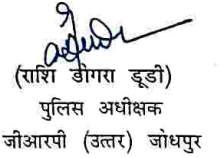 (राशि डोगरा डूडी)
पुलिस अधीक्षक
जीआरपी (उत्तर) जोधपुर